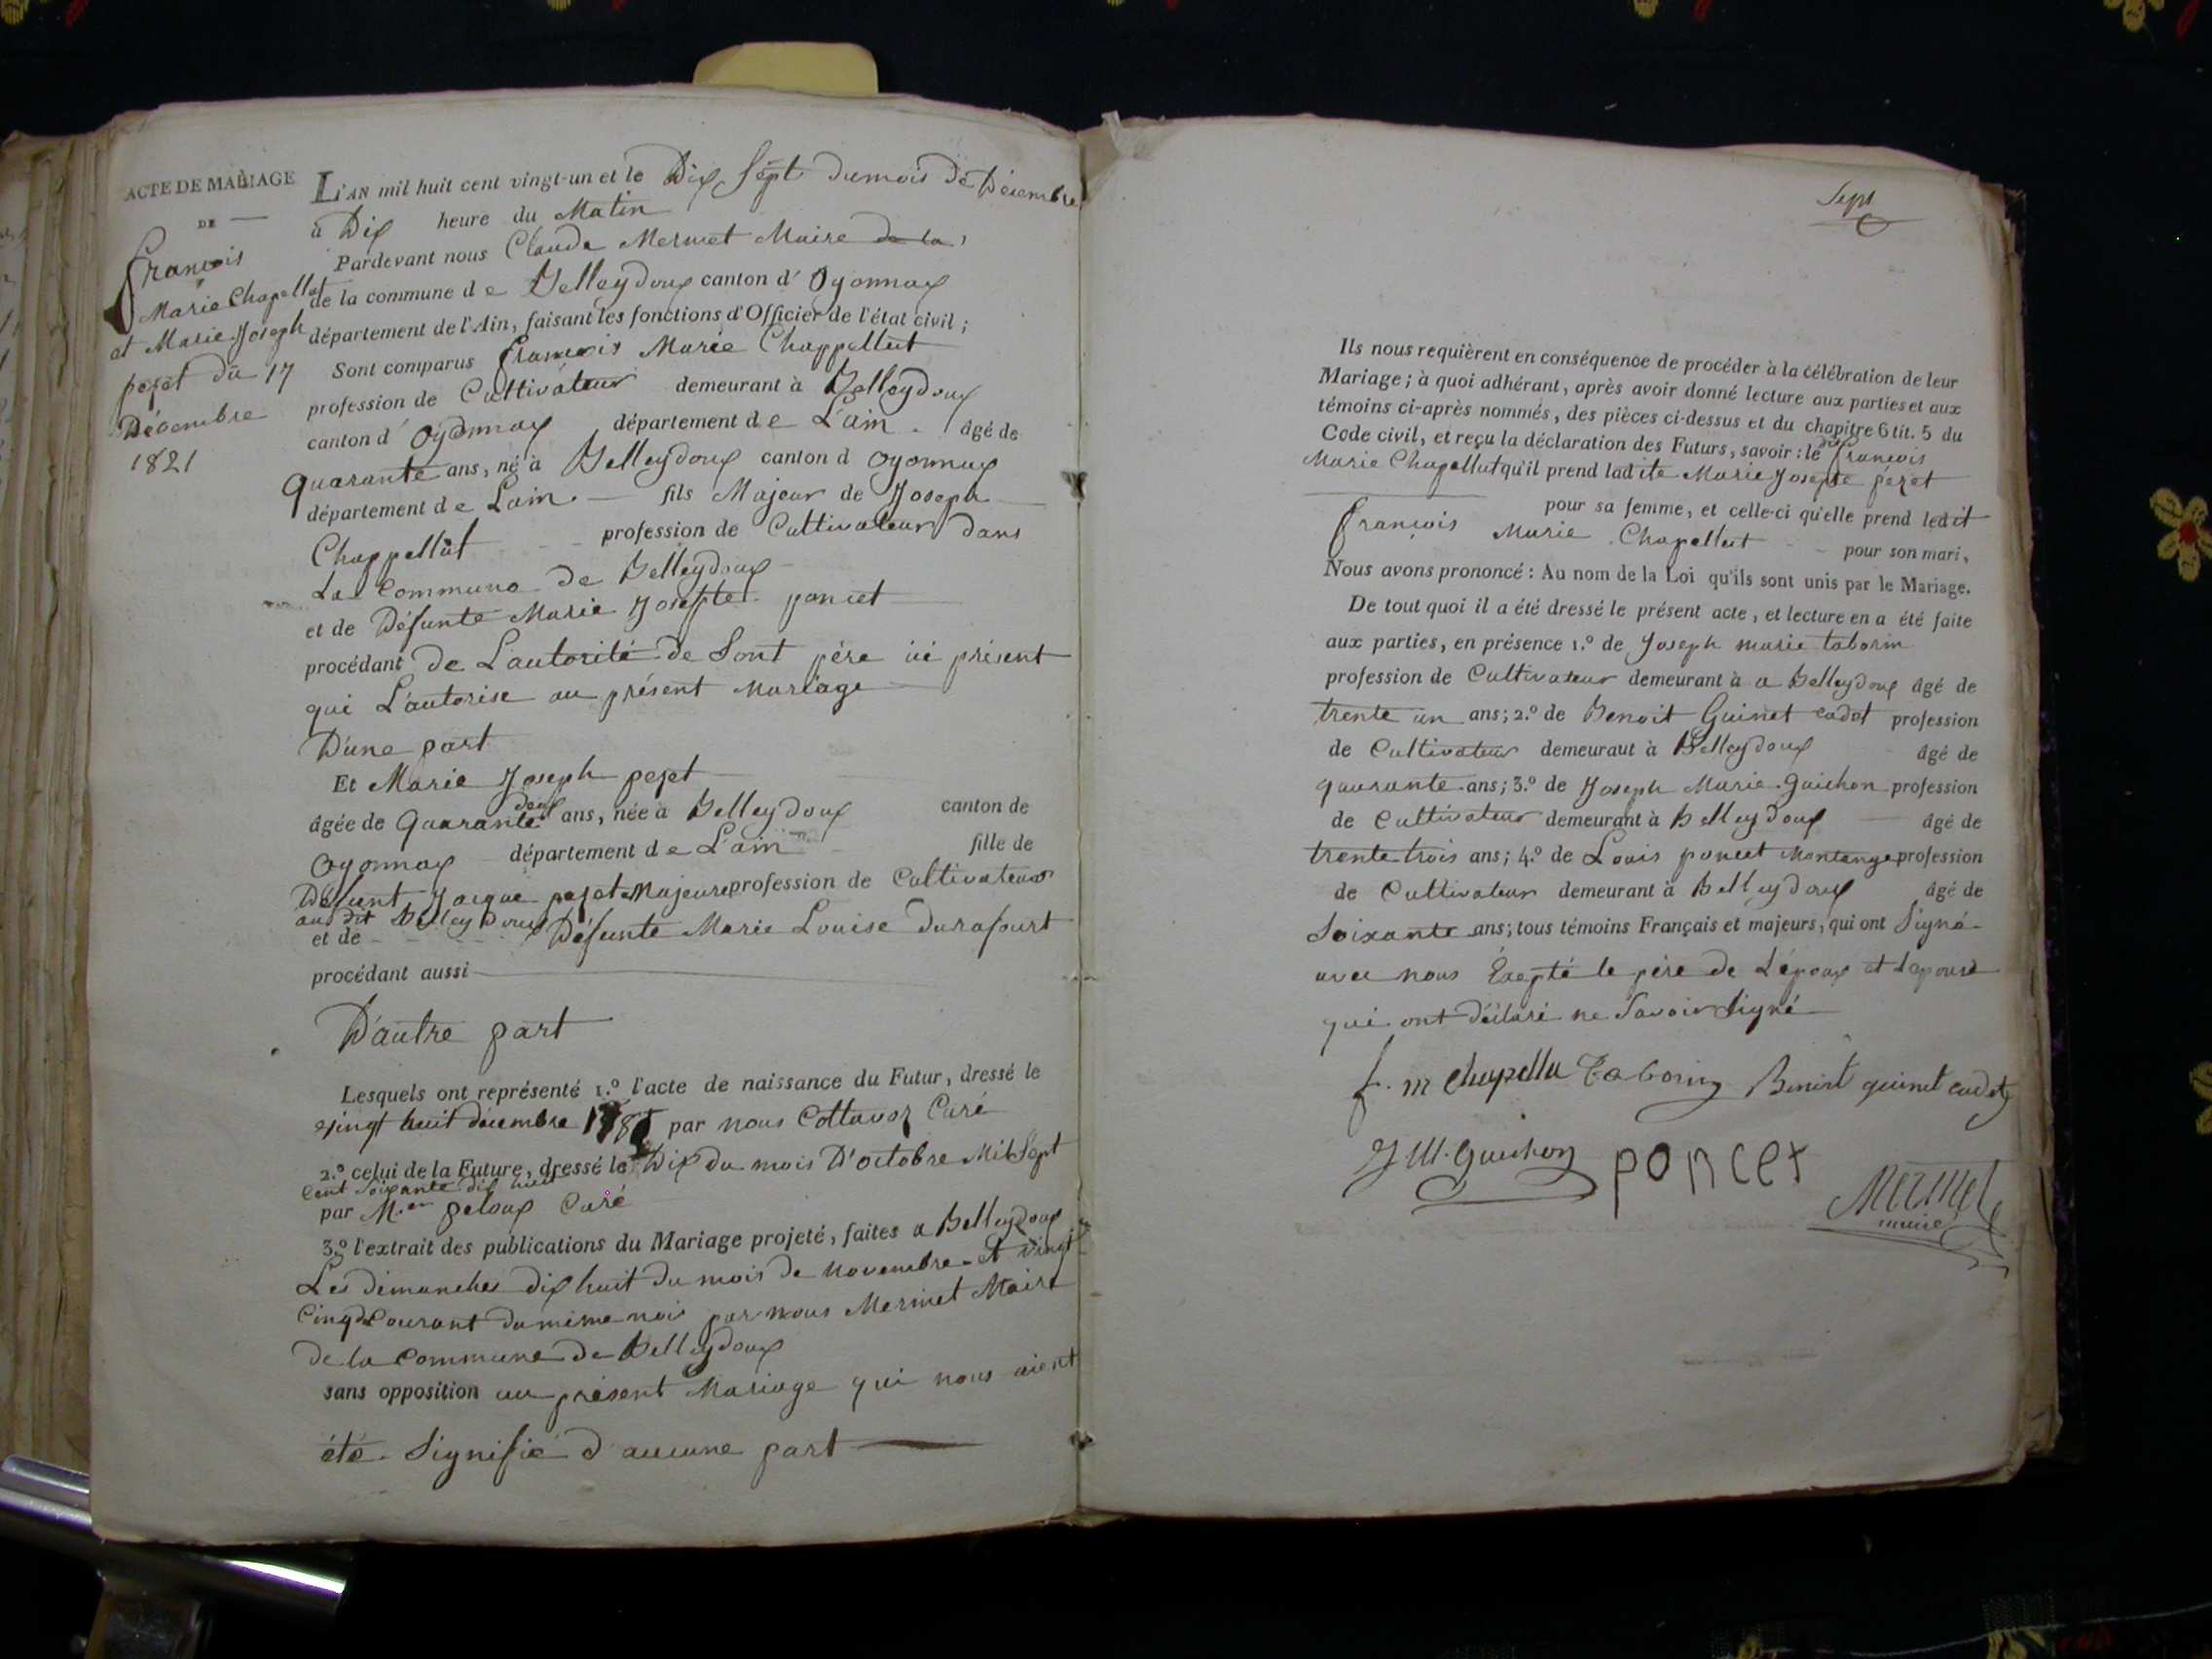 ACTE DE MARIAGE
DE
François
Marie Chapellut
et Marie Joseph
pezet du 17
Décembre
1821
L'AN mil huit cent vingt-un et le Dix Sept du mois de Décembre
à Dix heure du Matin
Pardevant nous Claude Mermet Maire de la
de la commune de Belleydoux canton d' Oyonnax
département de l'Ain, faisant les fonctions d'Officier de l'état civil ;
Sont comparus François Marie Chappellut
profession de Cultivateur demeurant à Belleydoux
canton d' Oyonnax département de L'ain âgé de
quarante ans, né à Belleydoux canton d Oyonnax
département de Lain fils Majeur de Joseph
Chappellut profession de Cultivateur dans
La Commune de Belleydoux
et de Défunte Marie Josephte poncet
procédant de L'autorité de Sont père ici présent
qui L'autorise au présent Mariage
D'une part
Et Marie Joseph pezet
âgée de Quarante deux ans, née à Belleydoux canton de
Oyonnax département de L'ain fille de
Défunt Jacque pezet Majeure profession de Cultivateur
au dit Belleydoux
et de Défunte Marie Louise Durafourt
procédant aussi
D'autre part
Lesquels ont représenté 1.º l'acte de naissance du Futur, dressé le
vingt huit décembre par nous Cottavoz Curé
2.º celui de la Future, dressé le Dix du mois D'octobre Mil Sept
Cent Soixante dix huit
par M.er peloux Curé
3.º l'extrait des publications du Mariage projeté, faites a Belleydoux
Les dimanches dix huit du mois de novembre et vingt
Cinq du Courant du même mois par nous Mermet Maire
de la Commune de Belleydoux
sans opposition au présent Mariage qui nous aient
été Signifié d'aucune part
Sept
Ils nous requièrent en conséquence de procéder à la célébration de leur
Mariage ; à quoi adhérant, après avoir donné lecture aux parties et aux
témoins ci-après nommés, des pièces ci-dessus et du chapitre 6 tit. 5 du
Code civil, et reçu la déclaration des Futurs, savoir : le dit François
Marie Chapellut qu'il prend ladite Marie Josepte pézet
pour sa femme, et celle-ci qu'elle prend ledit
François Marie Chapellut pour son mari,
Nous avons prononcé : Au nom de la Loi qu'ils sont unis par le Mariage.
De tout quoi il a été dressé le présent acte, et lecture en a été faite
aux parties, en présence 1.º de Joseph marie taborin
profession de Cultivateur demeurant à a Belleydoux âgé de
trente un ans; 2.º de Benoit Guinet cadet profession
de Cultivateur demeurant à Belleydoux âgé de
quarante ans; 3.º de Joseph Marie Guichon profession
de Cultivateur demeurant à Belleydoux âgé de
trente trois ans; 4.º de Louis poncet Montange profession
de Cultivateur demeurant à Belleydoux âgé de
Soixante ans; tous témoins Français et majeurs, qui ont Signé
avec nous Exepté le père de L'époux et L'épouse
qui ont déclaré ne Savoir Signé
f. m chapellu Taborin Benoit guinet cadet
J M. guichon poncet
Mermet
maire